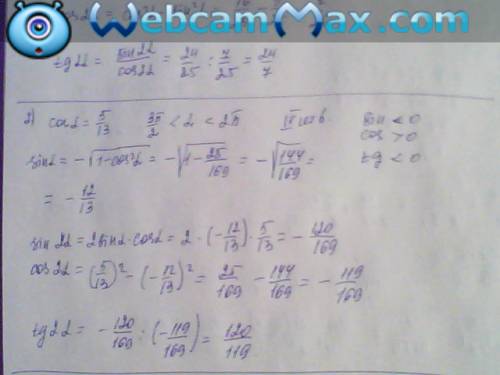 WebcamMax.com
tg2α = sin2α/cos2α = 24/25 : 7/25 = 24/7
2) cosα = 5/13 3π/2 < α < 2π IV sin < 0
cos > 0
sinα = -√(1-cos²α) = -√(1 - 25/169) = -√(144/169) = tg < 0
= -12/13
sin 2α = 2sinα·cosα = 2·(-12/13)·5/13 = -120/169
cos 2α = (5/13)² - (-12/13)² = 25/169 - 144/169 = -119/169
tg2α = -120/169 · (-119/169) = 120/119